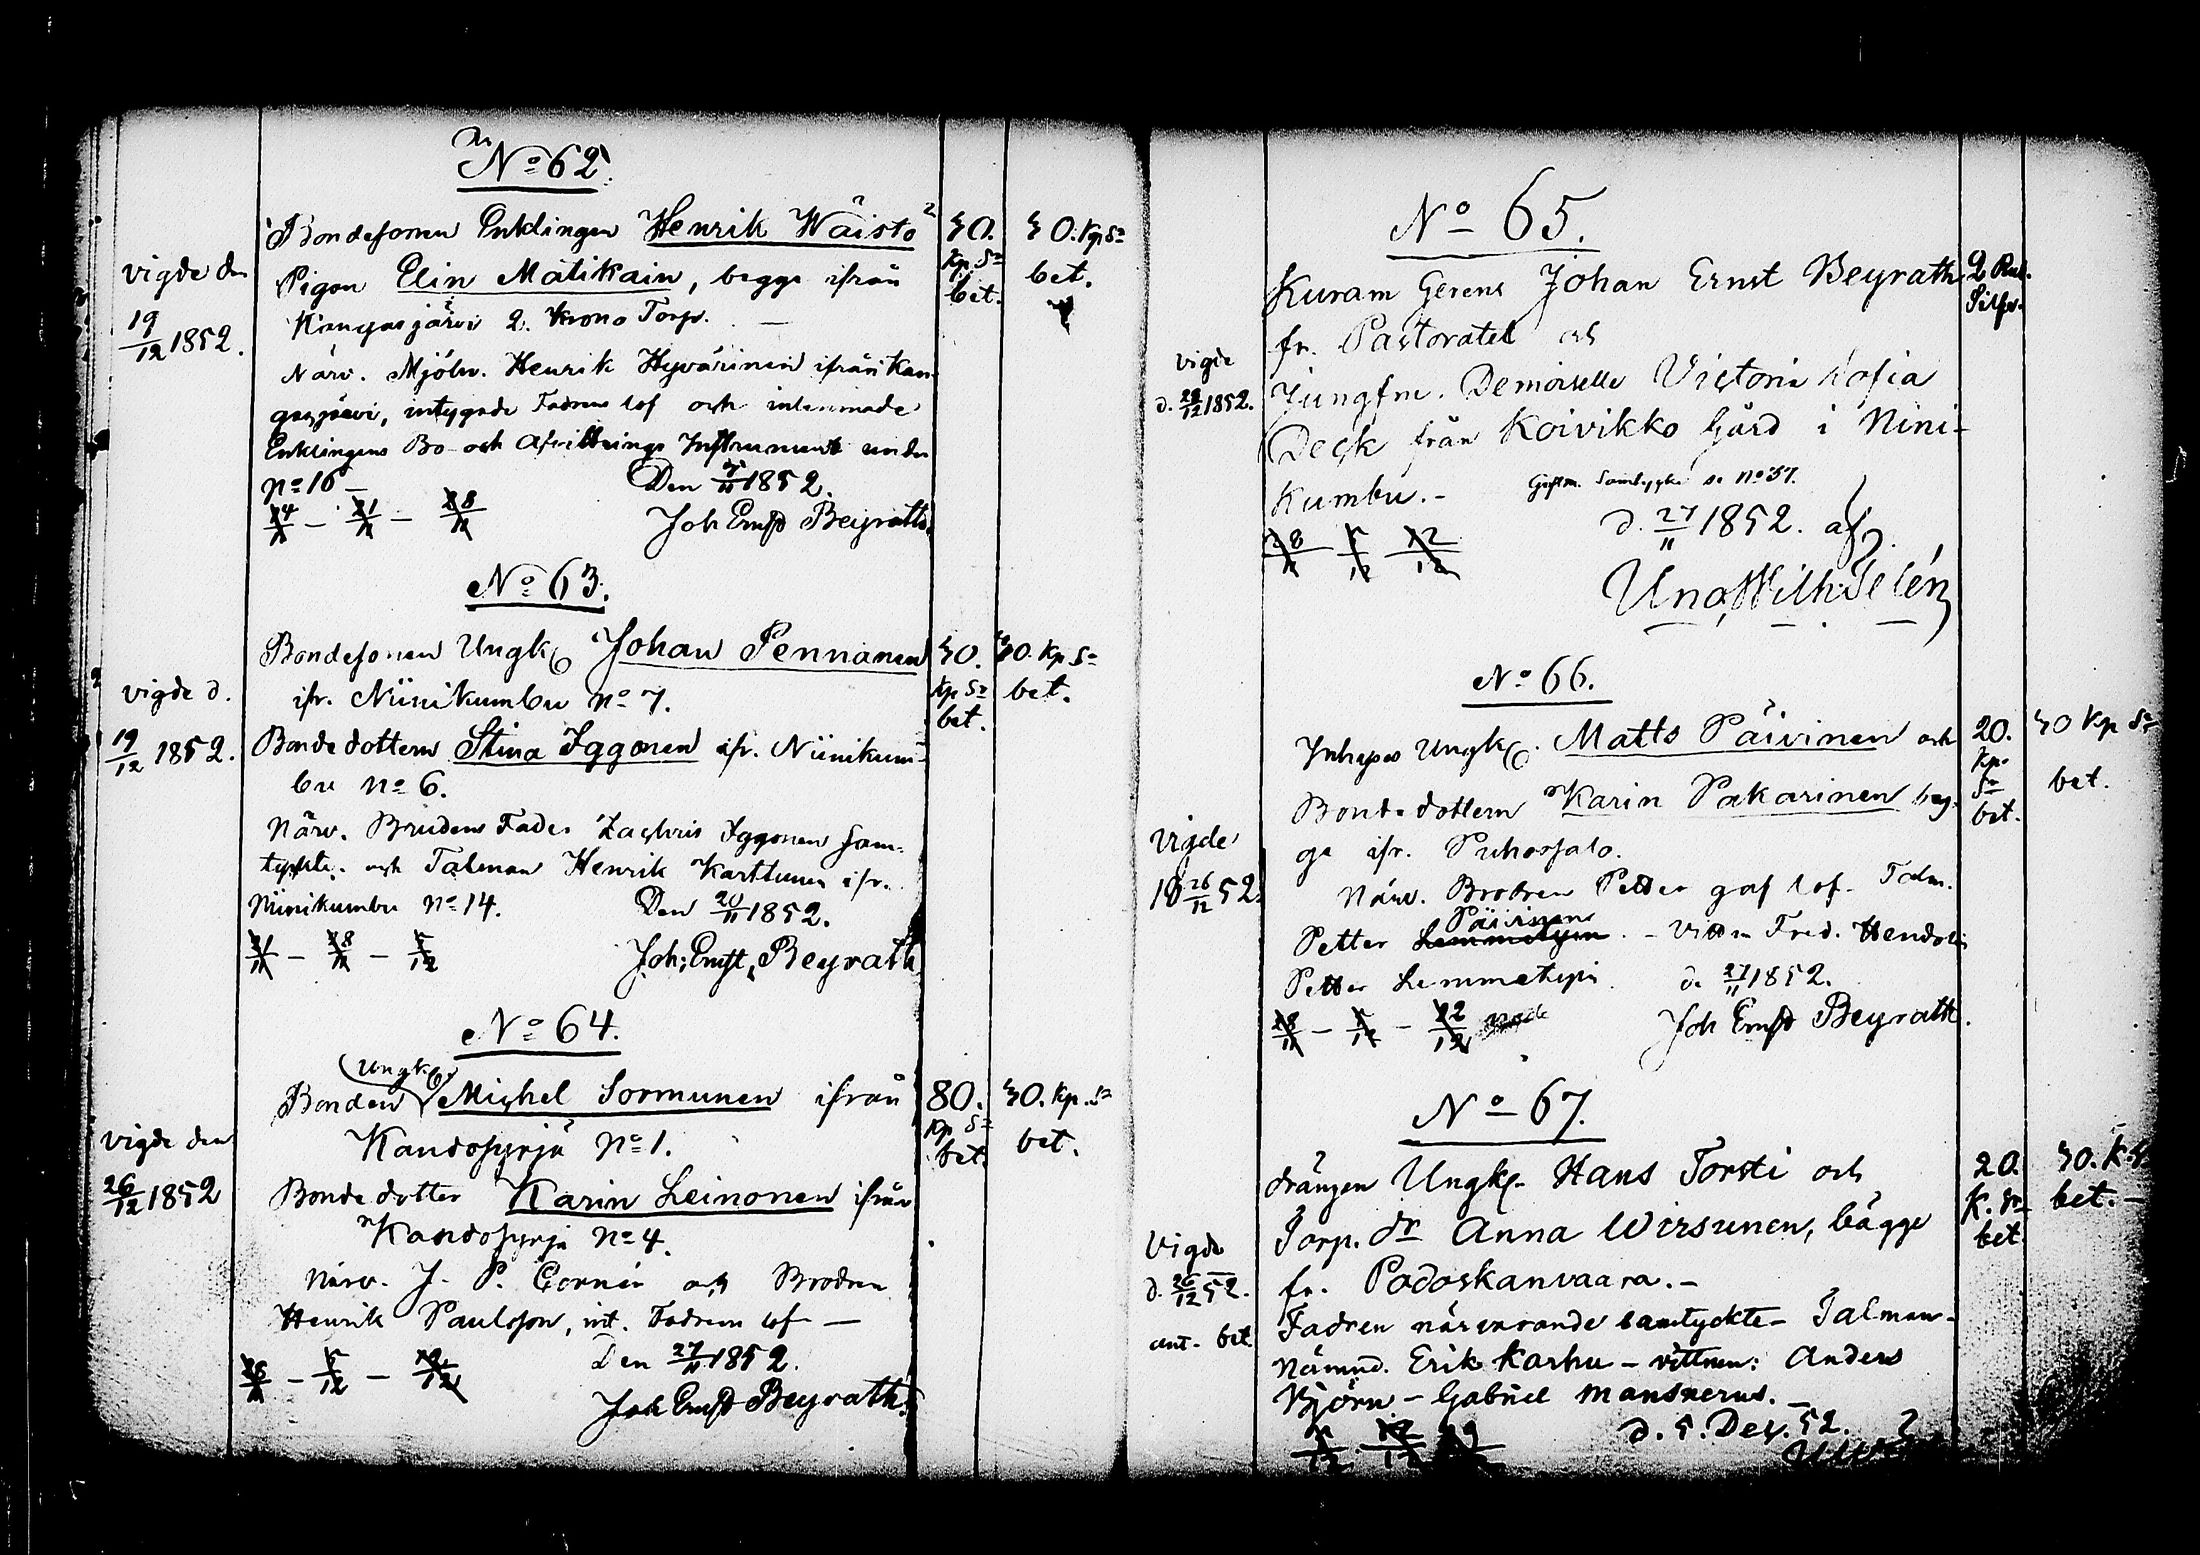 No 62.
vigde den
19/12 1852.
Bondesonen Enklingen Henrik Wäistö
Pigan Elin Mätikain, begge ifrån
Kangasjärvi 2. Krono Torp. —
Närv. Mjöln. Henrik Hyvärinen ifrån Kan-
gasjärvi, intygade Fadrens lof och inlemnade
Enklingens Bo- och Afvittrings Instrument under
No 16 —
Den 1852.
24/11 — 21/11 — 28/11
Joh Ernst Beyrath.
30.
Kp Sr
bet.
30. Kp Sr
bet.
No 63.
vigde d.
19/12 1852.
Bondesonen Ungk. Johan Pennanen
ifr. Niinikumbu No 7.
Bondedottern Stina Iggonen ifr. Niinikum-
bu No 6.
Närv. Brudens Fader Zachris Iggonen sam-
tyckte. och Talman Henrik Karttunen ifr.
Niinikumbu No 14.
Den 20/11 1852.
21/11 — 28/11 — 5/12
Joh; Ernst, Beyrath
30.
Kp Sr
bet.
30. Kp Sr
bet.
No 64.
vigde den
26/12 1852
Ungk.
Bonden Michel Sormunen ifrån
Kandosyrjä No 1.
Bonde dotter Karin Leinonen ifrån
Kandosyrjä No 4.
Närv. J. P. och Brodren
Henrik Paulsson, int. Fadrens lof —
Den 27/11 1852.
28/11 — 5/12 — 12/12
Joh Ernst Beyrath.
80.
Kp Sr
bet.
30. Kp. Sr
bet.
No 65.
vigde
d. 28/12 1852.
Kuram Gerens Johan Ernst Beyrath
fr. Pastoratet och
Jungfru. Demoiselle Victoria Sofia
Deck från Koivikko Gård i Nini-
kumbu. —
Giftm. Samtycke se No 37.
d. 27/11 1852. af
28/11 5/12 12/12
Uno Wilh: Telén
2 Rub.
Silfv.
No 66.
Vigde
18 26/12 52.
Inhyses Ungk. Matts Päivinen och
Bondedottern Karin Pakarinen beg-
ge ifr. Puhossalo.
Närv. Brodren Petter gaf lof. Talm.
Päivinen
Petter Lemmetyin. — Vittn Fred. Hendolin
Petter Lemmetyin. d. 27/11 1852.
28/11 — 5/12 — 12/12 vigde
Joh Ernst Beyrath.
20.
Kp.
Sr
bet.
30 Kp Sr
bet.
No 67.
Vigde
d. 26/12 52.
ant. bet
drängen Ungk. Hans Torsti och
Torp. dr Anna Wirsunen, bägge
fr. Podoskanvaara. —
Fadren närvarande samtyckte — Talman-
Nämnd. Erik Karhu — vittnen: Anders
Björn — Gabriel Mansnerus. —
5/12 12/12 19/12
d. 5. Dec. 52.
20.
K. Sr
bet
30. K. Sr
bet. —